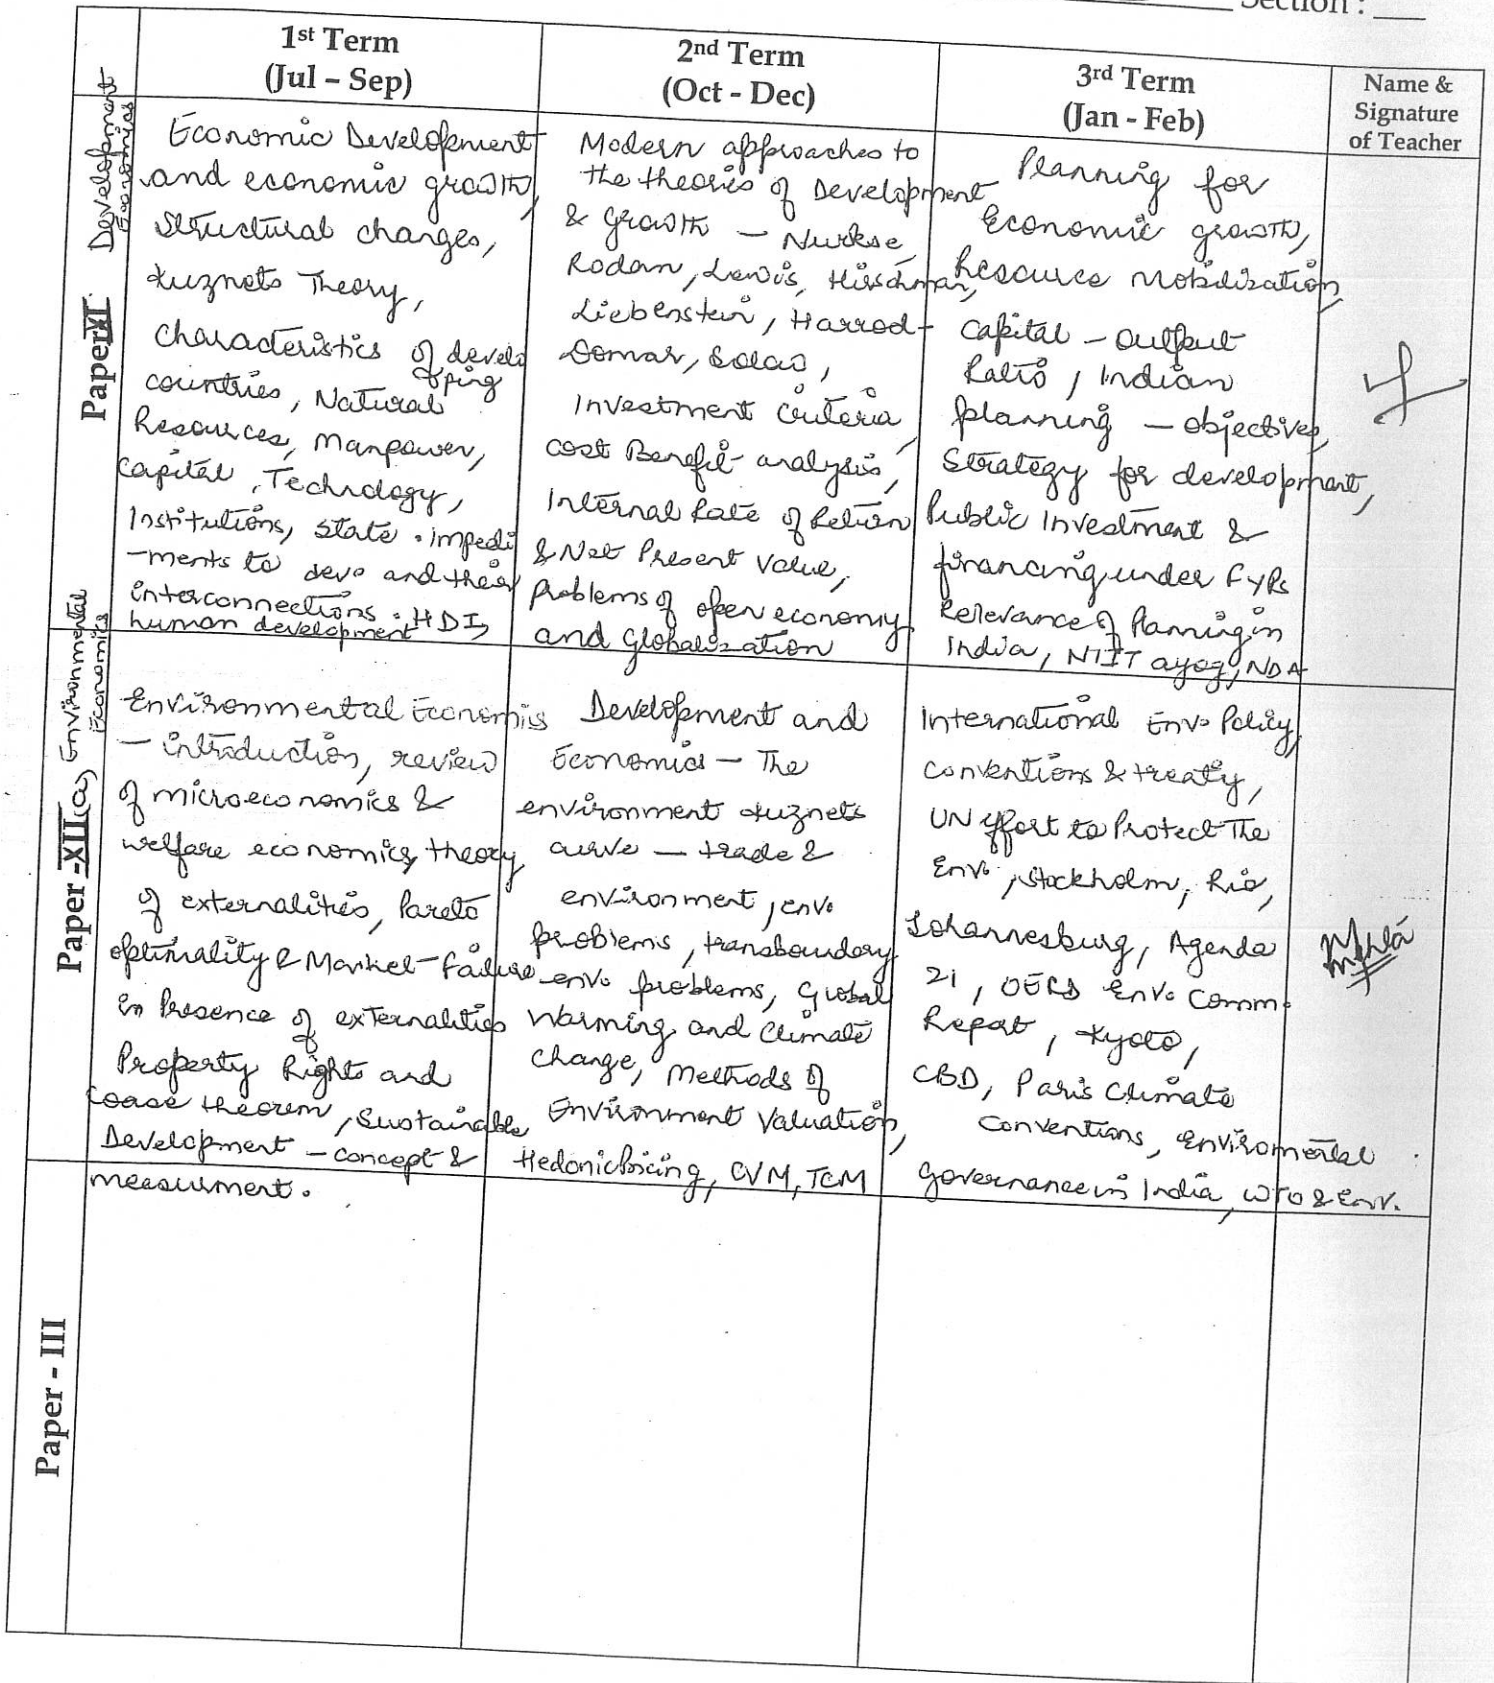 Section : ___
1st Term
(Jul – Sep)
2nd Term
(Oct - Dec)
3rd Term
(Jan - Feb)
Name &
Signature
of Teacher
Paper XI
Development
Economics
Economic Development
and economic growth,
Structural changes,
Kuznets Theory,
Characteristics of develo
ping
countries, Natural
Resources, Manpower,
Capital, Technology,
Institutions, State . impedi
-ments to devo and their
interconnections . HDI,
human development
Modern approaches to
the theories of Development
& growth — Nurkse,
Rodan, Lewis, Hirschman,
Liebenstein, Harrod-
Domar, Solow,
Investment Criteria,
Cost Benefit analysis,
Internal Rate of Return
& Net Present Value,
Problems of open economy
and Globalization
Planning for
Economic growth,
Resource Mobilization,
Capital – Output
Ratio, Indian
planning — objectives,
Strategy for development,
Public Investment &
financing under FYPs
Relevance of Planning in
India, NIIT ayog, NDA
Paper - XII (a) Environmental
Economics
Environmental Economics
— introduction, review
of microeconomics &
welfare economics, theory
of externalities, Pareto
optimality & Market-failure
in Presence of externalities
Property Rights and
Coase theorem, Sustainable
Development – concept &
measurment.
Development and
Economics — The
environment Kuznets
curve — trade &
environment, envo
problems, transboundary
envo problems, Global
Warming and Climate
Change, Methods of
Environment Valuation,
Hedonic Pricing, CVM, TCM
International Envo Policy,
Conventions & treaty,
UN effort to Protect The
Envo, Stockholm, Rio,
Johannesburg, Agenda
21, OECD Envo Comm.
Report, Kyoto,
CBD, Paris Climate
Conventions, Enviromental
Governance in India, WTO & Env.
Paper - III